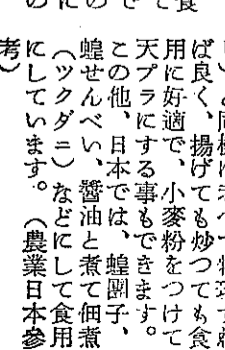 ば良く、揚げても炒つても食
用に好適で、小麥粉をつけて
天プラにする事もできます。
この他、日本では、蝗團子、
蝗せんべい、醬油と煮て佃煮
（ツクダニ）などにして食用
にしています。（農業日本參
考）